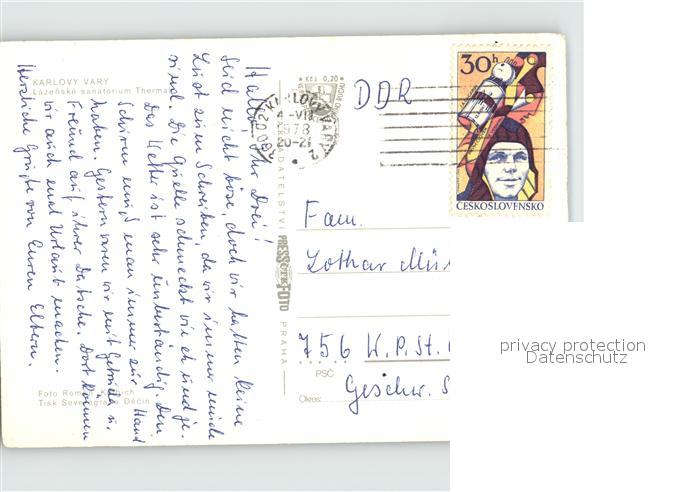 KARLOVY VARY
Lázeňské sanatorium Thermal
Hallo Ihr Drei!
Seid nicht böse, doch wir hatten keine
Lust zum Schreiben, da wir immer müde
sind. Die Quelle schmeckt nach und je.
Das Wetter ist sehr unbeständig. Den
Schirm muß man immer zur Hand
haben. Gestern waren wir mit Gerhild u.
Freund auf ihrer Datsche. Dort können
wir auch mal Urlaub machen.
Herzliche Grüße von Euren Eltern.
Foto Roman
Tisk Severografia Děčín
Kčs 0,20
KARLOVY VARY
4-VII
78
20-21
NAKLADATELSTVÍ
PRESSFOTO
PRAHA
DDR
30h
ČESKOSLOVENSKO
Fam.
Lothar Mü
756 W.P.St.
PSČ
Geschw. S
Okres:
privacy protection
Datenschutz